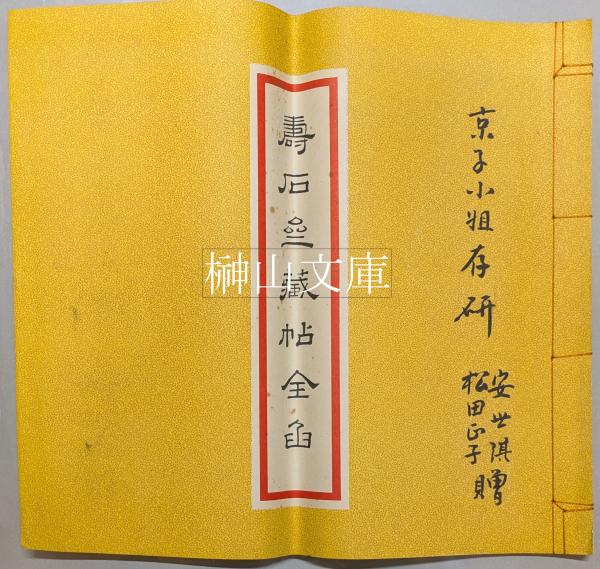 京子小姐存研
安世琪
松田正子贈
壽石齋藏帖全函
榊山文庫